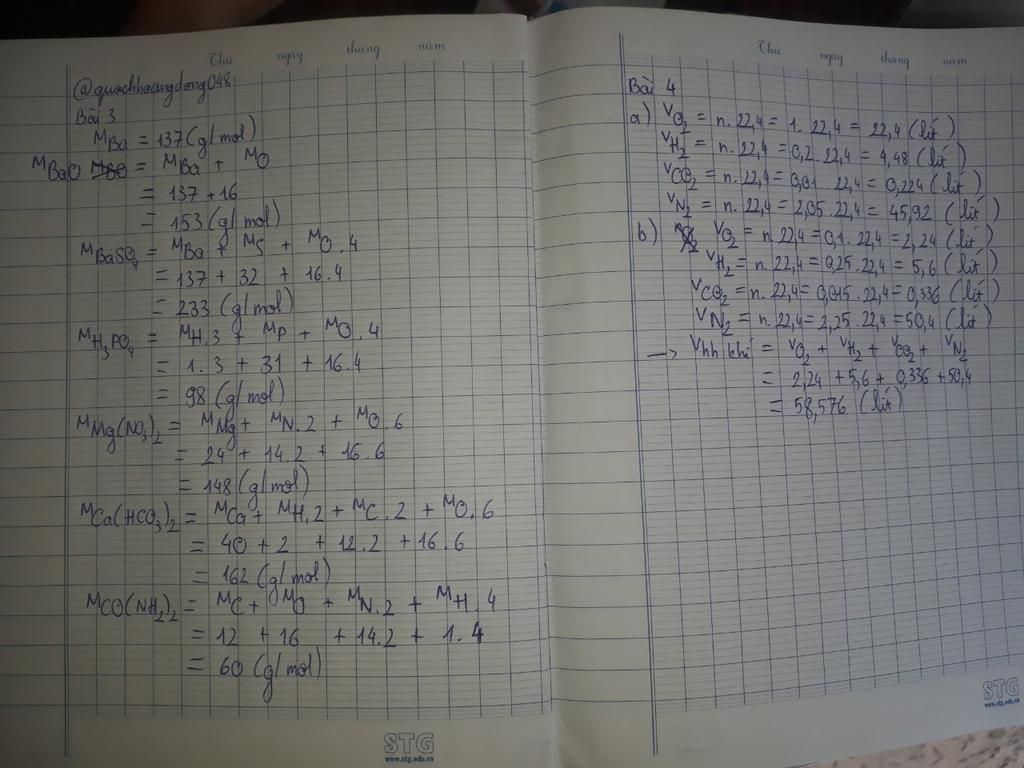 Thứ ngày tháng năm
@quachhoangdong048
Bài 3
M_Ba = 137 (g/mol)
M_BaO = M_Ba + M_O
= 137 + 16
= 153 (g/mol)
M_BaSO₄ = M_Ba + M_S + M_O . 4
= 137 + 32 + 16.4
= 233 (g/mol)
M_H₃PO₄ = M_H.3 + M_P + M_O . 4
= 1.3 + 31 + 16.4
= 98 (g/mol)
M_Mg(NO₃)₂ = M_Mg + M_N.2 + M_O .6
= 24 + 14.2 + 16.6
= 148 (g/mol)
M_Ca(HCO₃)₂ = M_Ca + M_H.2 + M_C.2 + M_O.6
= 40 + 2 + 12.2 + 16.6
= 162 (g/mol)
M_CO(NH₂)₂ = M_C + M_O + M_N.2 + M_H.4
= 12 + 16 + 14.2 + 1.4
= 60 (g/mol)
STG
www.stg.edu.vn
Thứ ngày tháng năm
Bài 4
a) V_O₂ = n. 22,4 = 1. 22,4 = 22,4 (lít)
V_H₂ = n. 22,4 = 0,2. 22,4 = 4,48 (lít)
V_CO₂ = n. 22,4 = 0,01 22,4 = 0,224 (lít)
V_N₂ = n. 22,4 = 2,05. 22,4 = 45,92 (lít)
b) V_O₂ = n. 22,4 = 0,1. 22,4 = 2,24 (lít)
V_H₂ = n. 22,4 = 0,25. 22,4 = 5,6 (lít)
V_CO₂ = n. 22,4 = 0,015. 22,4 = 0,336 (lít)
V_N₂ = n. 22,4 = 2,25. 22,4 = 50,4 (lít)
—> V hh khí = V_O₂ + V_H₂ + V_CO₂ + V_N₂
= 2,24 + 5,6 + 0,336 + 50,4
= 58,576 (lít)
STG
www.stg.edu.vn